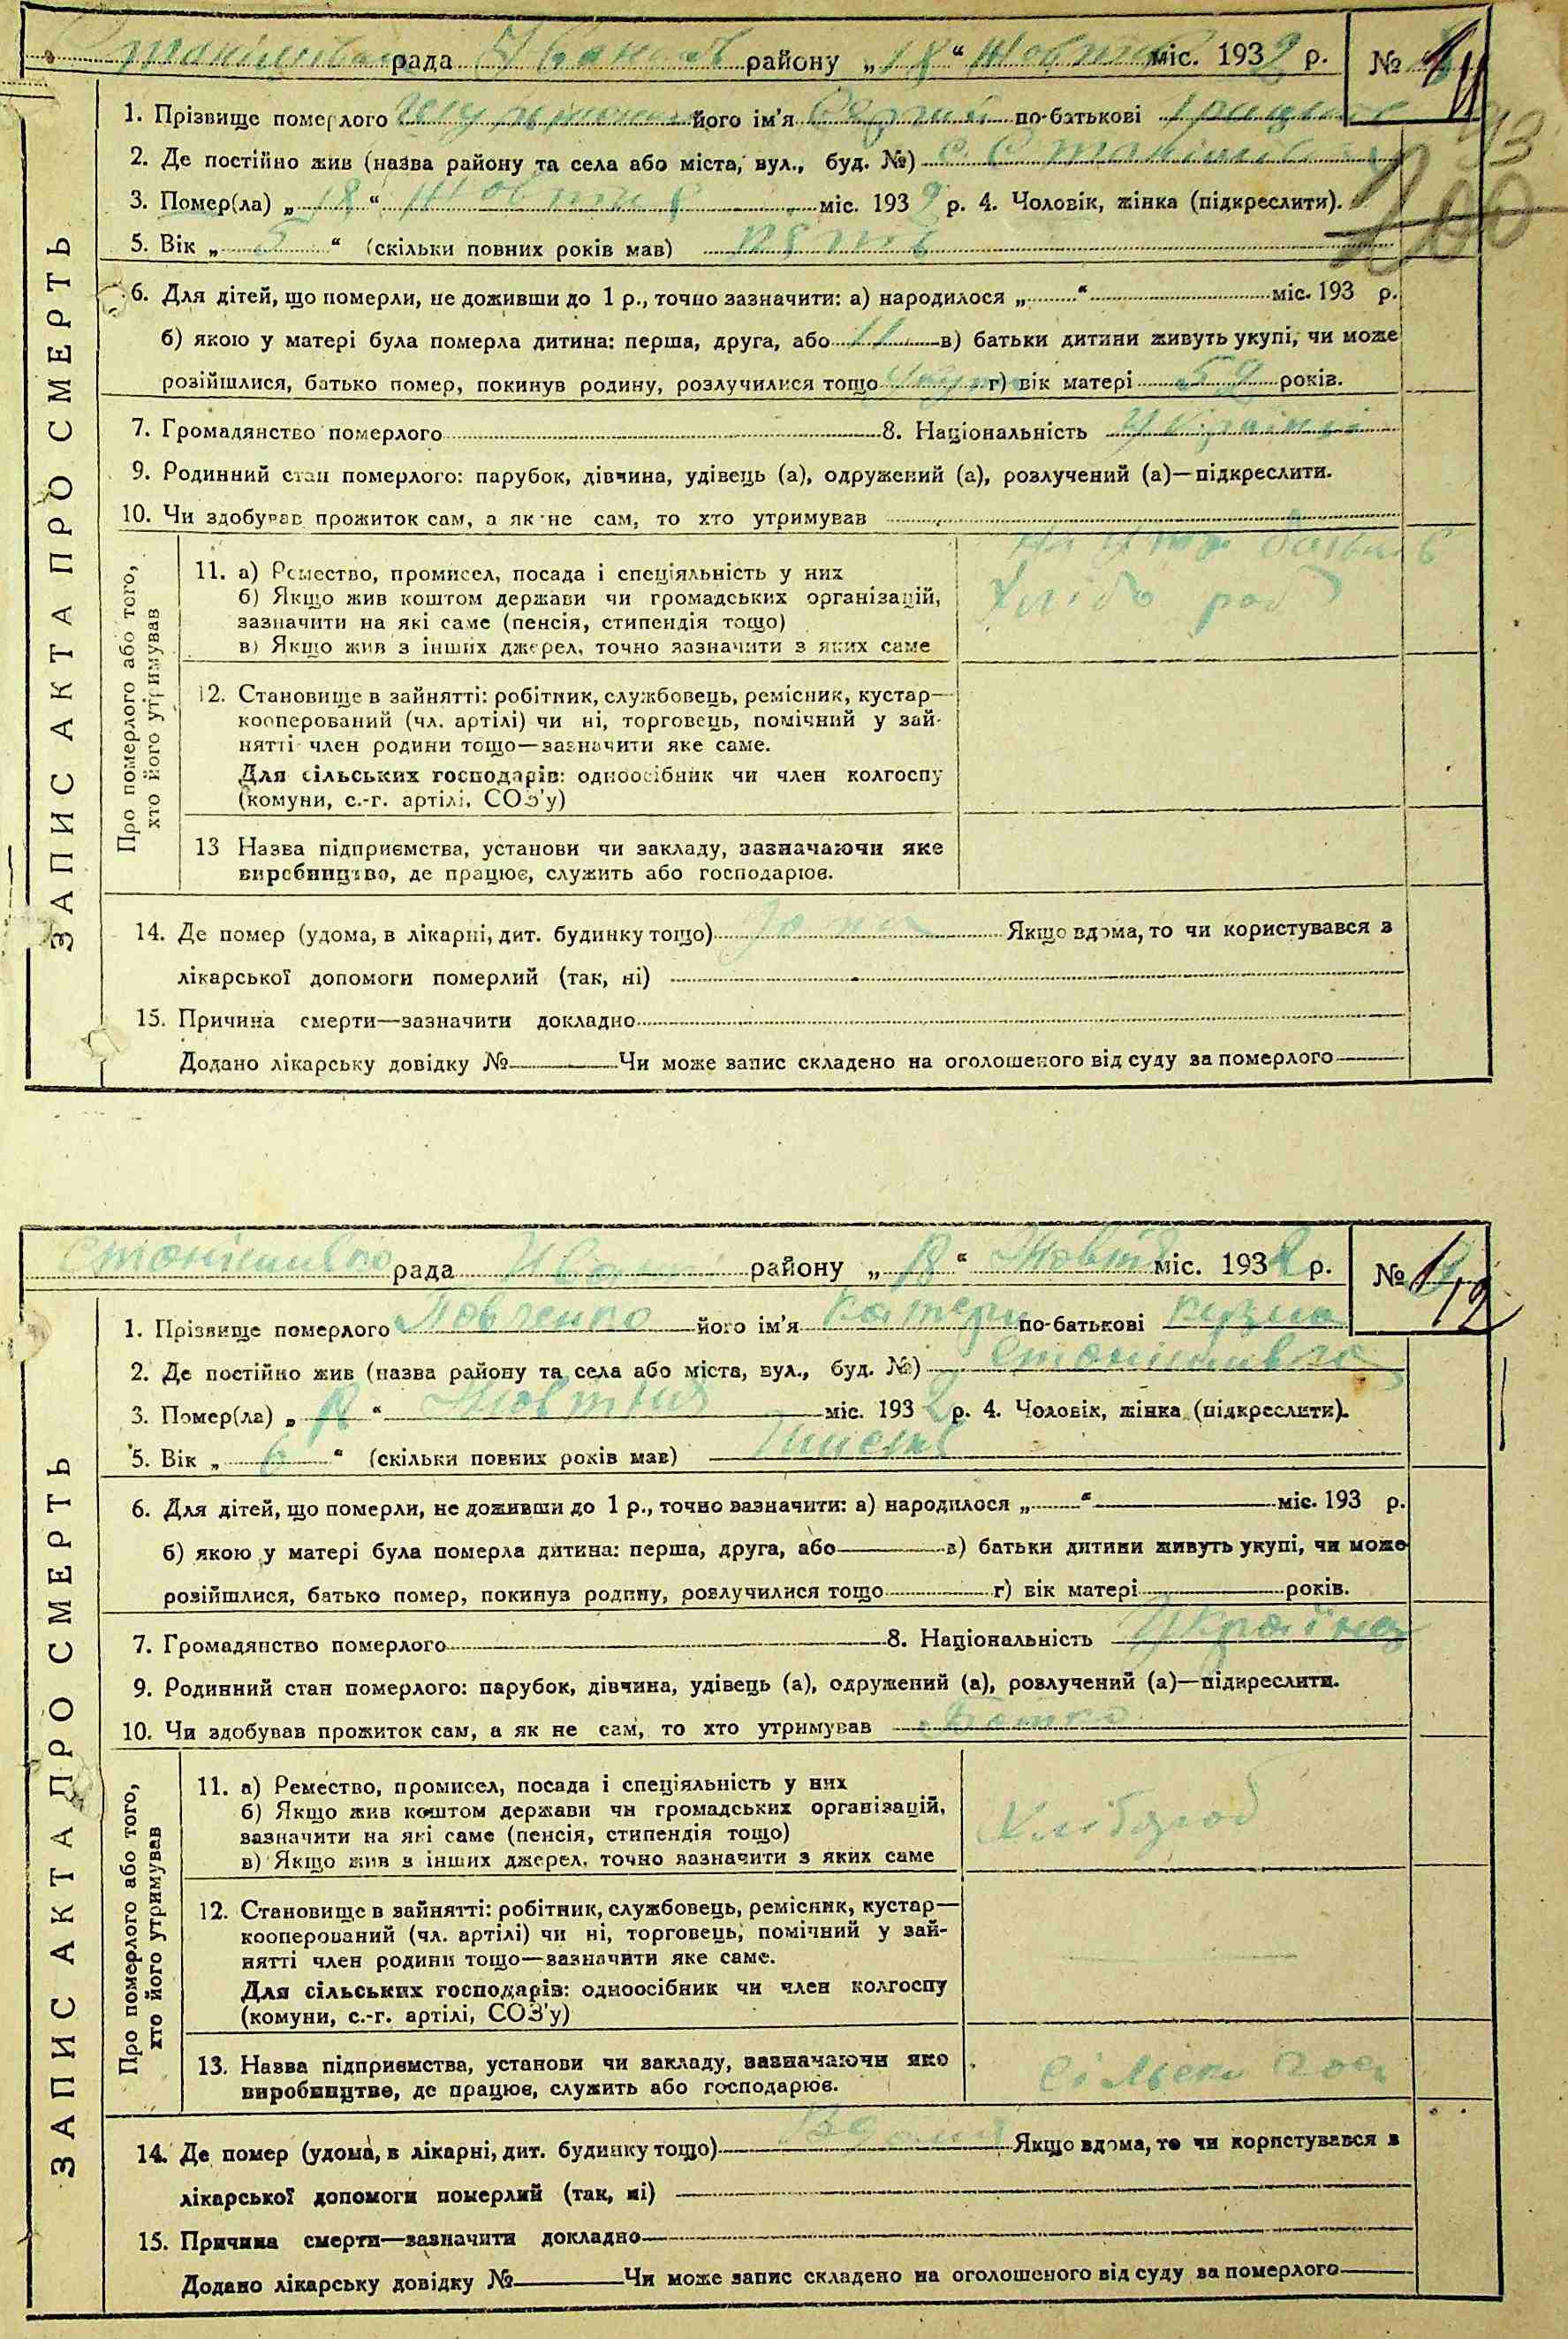 рада району „ 18 “ Жовтня міс. 1932 р. № 11
1. Прізвище померлого його ім'я Сергій по-батькові
2. Де постійно жив (назва району та села або міста, вул., буд. №) с.
3. Помер(ла) „ 18 “ Жовтня міс. 1932 р. 4. Чоловік, жінка (підкреслити).
5. Вік „ 5 “ (скільки повних років мав) пять
6. Для дітей, що померли, не доживши до 1 р., точно зазначити: а) народилося „ “ міс. 193 р.
б) якою у матері була померла дитина: перша, друга, або 11 в) батьки дитини живуть укупі, чи може
розійшлися, батько помер, покинув родину, розлучилися тощо г) вік матері 52 років.
7. Громадянство померлого 8. Національність
9. Родинний стан померлого: парубок, дівчина, удівець (а), одружений (а), розлучений (а)—підкреслити.
10. Чи здобував прожиток сам, а як не сам, то хто утримував
ЗАПИС АКТА ПРО СМЕРТЬ
Про померлого або того,
хто його утримував
11. а) Ремество, промисел, посада і спеціяльність у них
б) Якщо жив коштом держави чи громадських організацій,
зазначити на які саме (пенсія, стипендія тощо)
в) Якщо жив з інших джерел, точно зазначити з яких саме
Хлібороб
12. Становище в зайнятті: робітник, службовець, ремісник, кустар—
кооперований (чл. артілі) чи ні, торговець, помічний у зай-
нятті член родини тощо—зазначити яке саме.
Для сільських господарів: одноосібник чи член колгоспу
(комуни, с.-г. артілі, СОЗ'у)
13 Назва підприємства, установи чи закладу, зазначаючи яке
виробництво, де працює, служить або господарює.
14. Де помер (удома, в лікарні, дит. будинку тощо) Якщо вдома, то чи користувався з
лікарської допомоги померлий (так, ні)
15. Причина смерти—зазначити докладно
Додано лікарську довідку № Чи може запис складено на оголошеного від суду за померлого
рада району „ 18 “ міс. 1932 р. № 12
1. Прізвище померлого його ім'я Катери по-батькові Кузма
2. Де постійно жив (назва району та села або міста, вул., буд. №)
3. Помер(ла) „ 18 “ Жовтня міс. 1932 р. 4. Чоловік, жінка (підкреслити).
5. Вік „ 6 “ (скільки повних років мав) Шість
6. Для дітей, що померли, не доживши до 1 р., точно зазначити: а) народилося „ “ міс. 193 р.
б) якою у матері була померла дитина: перша, друга, або в) батьки дитини живуть укупі, чи може
розійшлися, батько помер, покинув родину, розлучилися тощо г) вік матері років.
7. Громадянство померлого 8. Національність
9. Родинний стан померлого: парубок, дівчина, удівець (а), одружений (а), розлучений (а)—підкреслити.
10. Чи здобував прожиток сам, а як не сам, то хто утримував Батко
ЗАПИС АКТА ПРО СМЕРТЬ
Про померлого або того,
хто його утримував
11. а) Ремество, промисел, посада і спеціяльність у них
б) Якщо жив коштом держави чи громадських організацій,
зазначити на які саме (пенсія, стипендія тощо)
в) Якщо жив з інших джерел, точно зазначити з яких саме
Хлібороб
12. Становище в зайнятті: робітник, службовець, ремісник, кустар—
кооперований (чл. артілі) чи ні, торговець, помічний у зай-
нятті член родини тощо—зазначити яке саме.
Для сільських господарів: одноосібник чи член колгоспу
(комуни, с.-г. артілі, СОЗ'у)
13. Назва підприємства, установи чи закладу, зазначаючи яке
виробництво, де працює, служить або господарює.
14. Де помер (удома, в лікарні, дит. будинку тощо) Вдома Якщо вдома, то чи користувався з
лікарської допомоги померлий (так, ні)
15. Причина смерти—зазначити докладно
Додано лікарську довідку № Чи може запис складено на оголошеного від суду за померлого